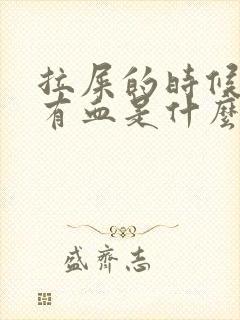 拉屎的時候
有血是什麼
盛齊志